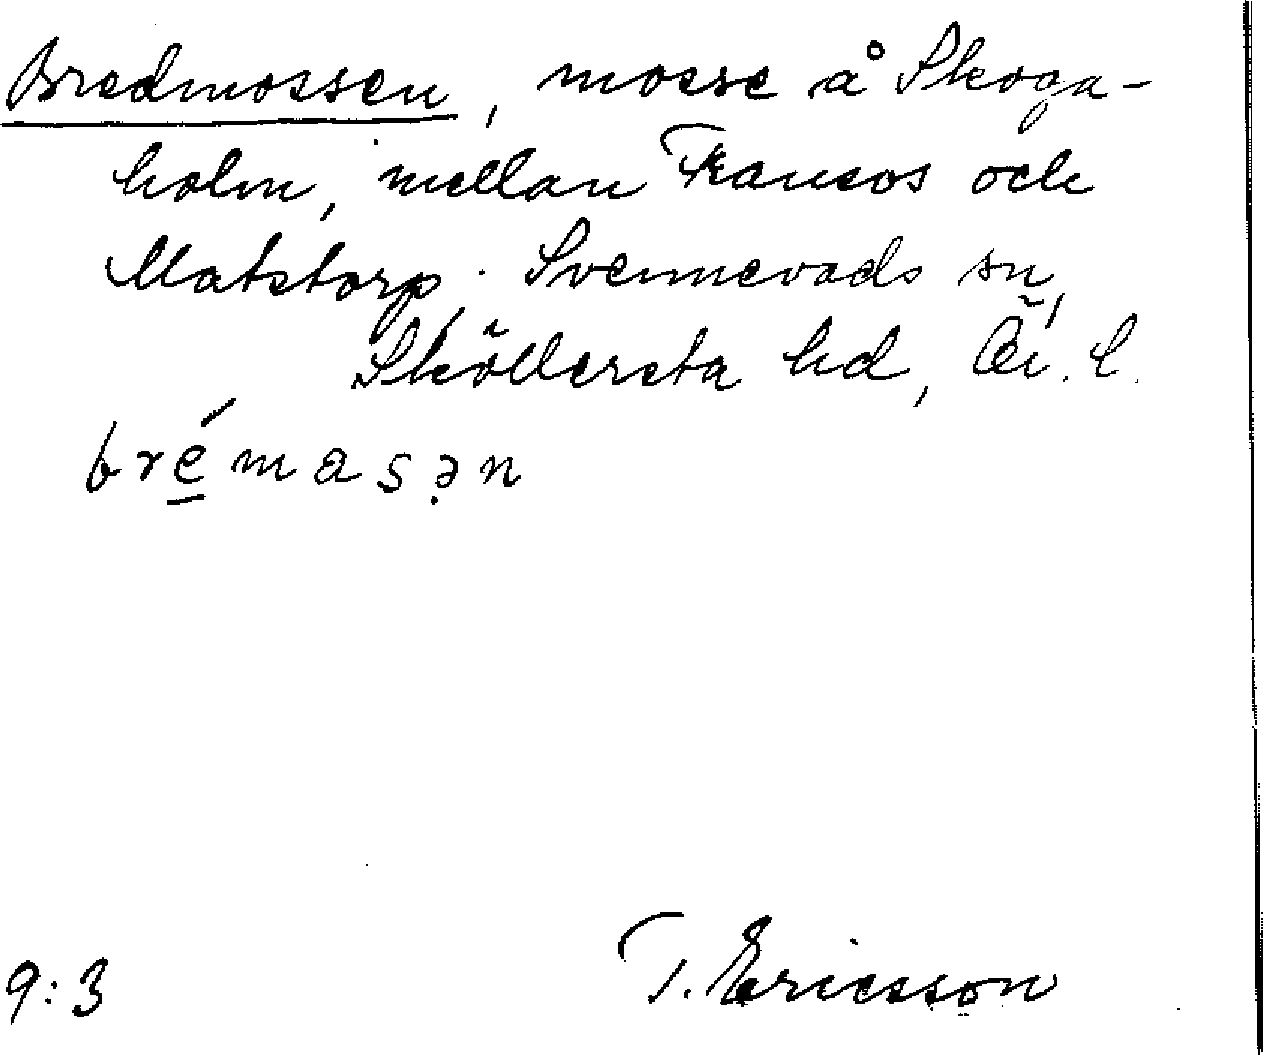 Bredmossen, mosse å Skoga-
holm, mellan Fransos och
Matstorp. Svennevads sn,
Sköllersta hd, Ör. l.
bré̲masə̣n
9:3
T. Ericsson